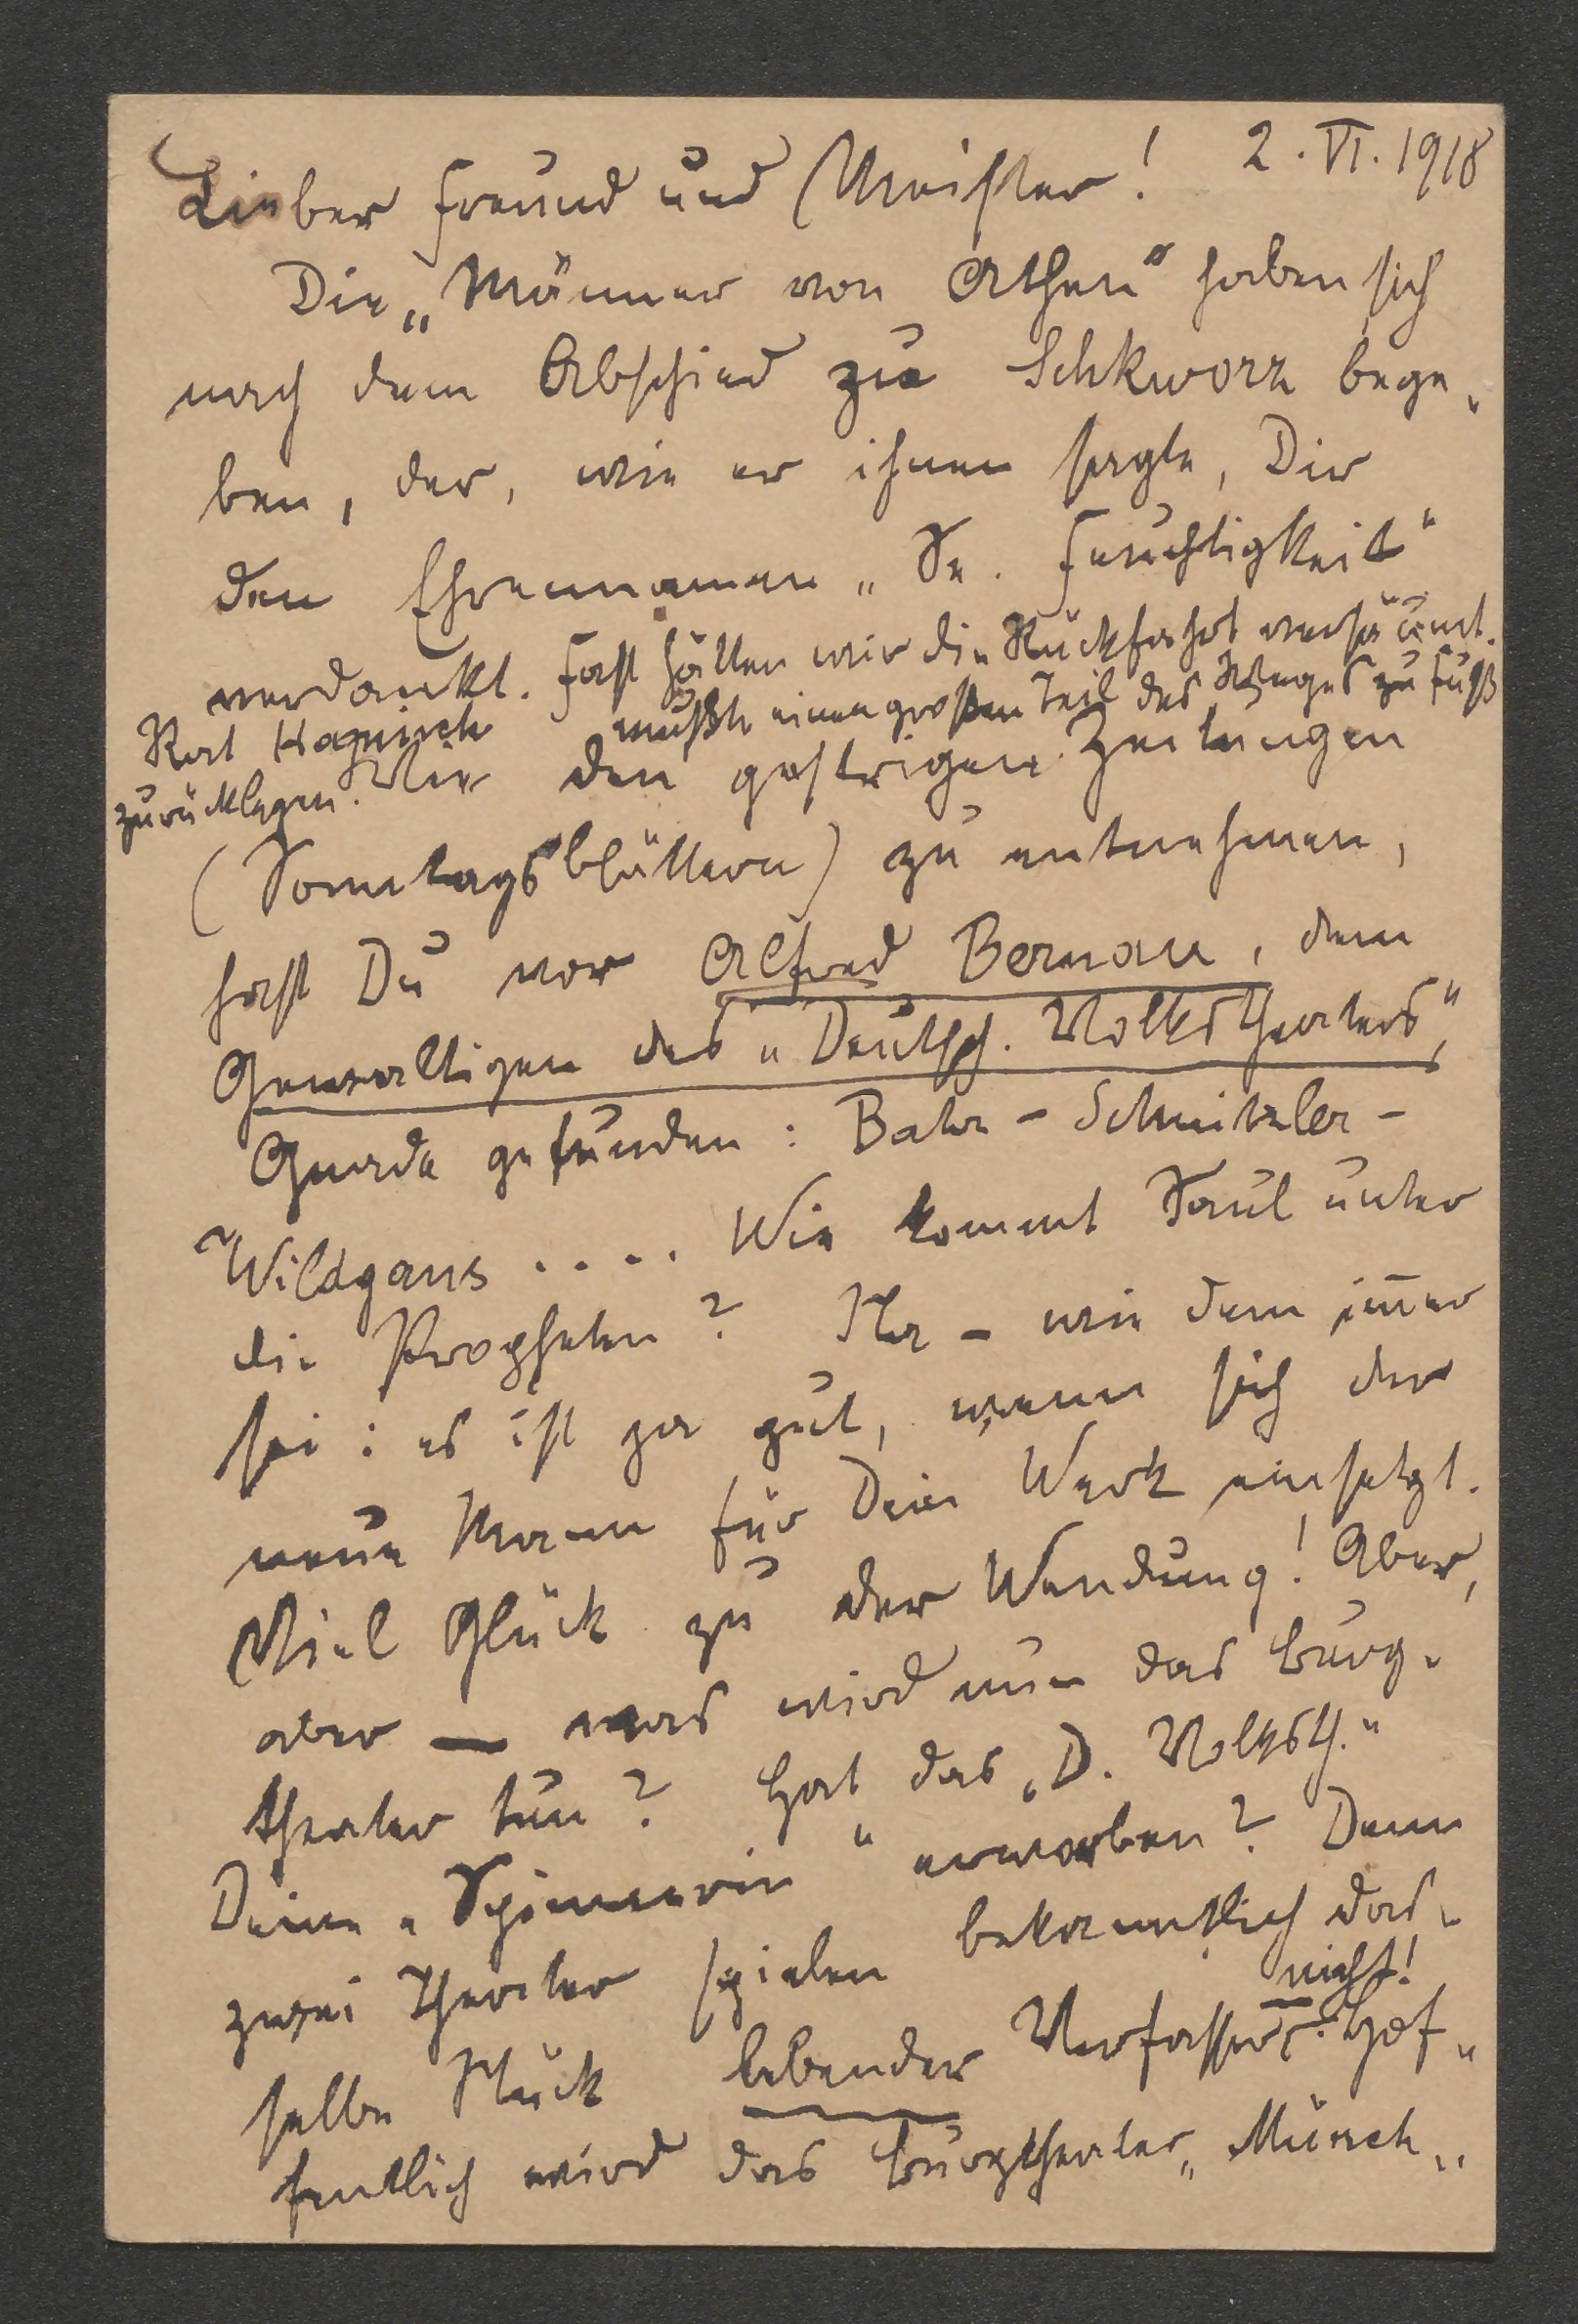 2. VI. 1918
Lieber Freund und Meister!
Die „Männer von Athen“ haben sich
nach dem Abschied zu Schkworz bege-
ben, der, wie er ihnen sagte, Dir
den Ehrennamen „Se. Feuchtigkeit“
verdankt. Fast hätten wir die Rückfahrt versäumt.
Rat Hapnich mußte einen großen Teil des Weges zu Fuß
zurücklegen. Wie den gestrigen Zeitungen
(Sonntagsblättern) zu entnehmen,
hast Du vor Alfred Bernau, dem
Gewaltigen des „Deutsch. Volkstheaters“,
Gnade gefunden: Bahr - Schnitzler -
Wildgans .... Wie kommt Saul unter
die Propheten? Na - wie dem im̅er
sei: es ist ja gut, wenn sich der
neue Mann für Dein Werk einsetzt.
Viel Glück zu der Wendung! Aber,
aber — was wird nun das Burg-
theater tun? Hat das „D. Volksth.“
Deine „Spinnerin“ erworben? Denn
zwei Theater spielen bekanntlich das-
selbe Stück lebender Verfasser nicht! Hof-
fentlich wird das Burgtheater „Münch-